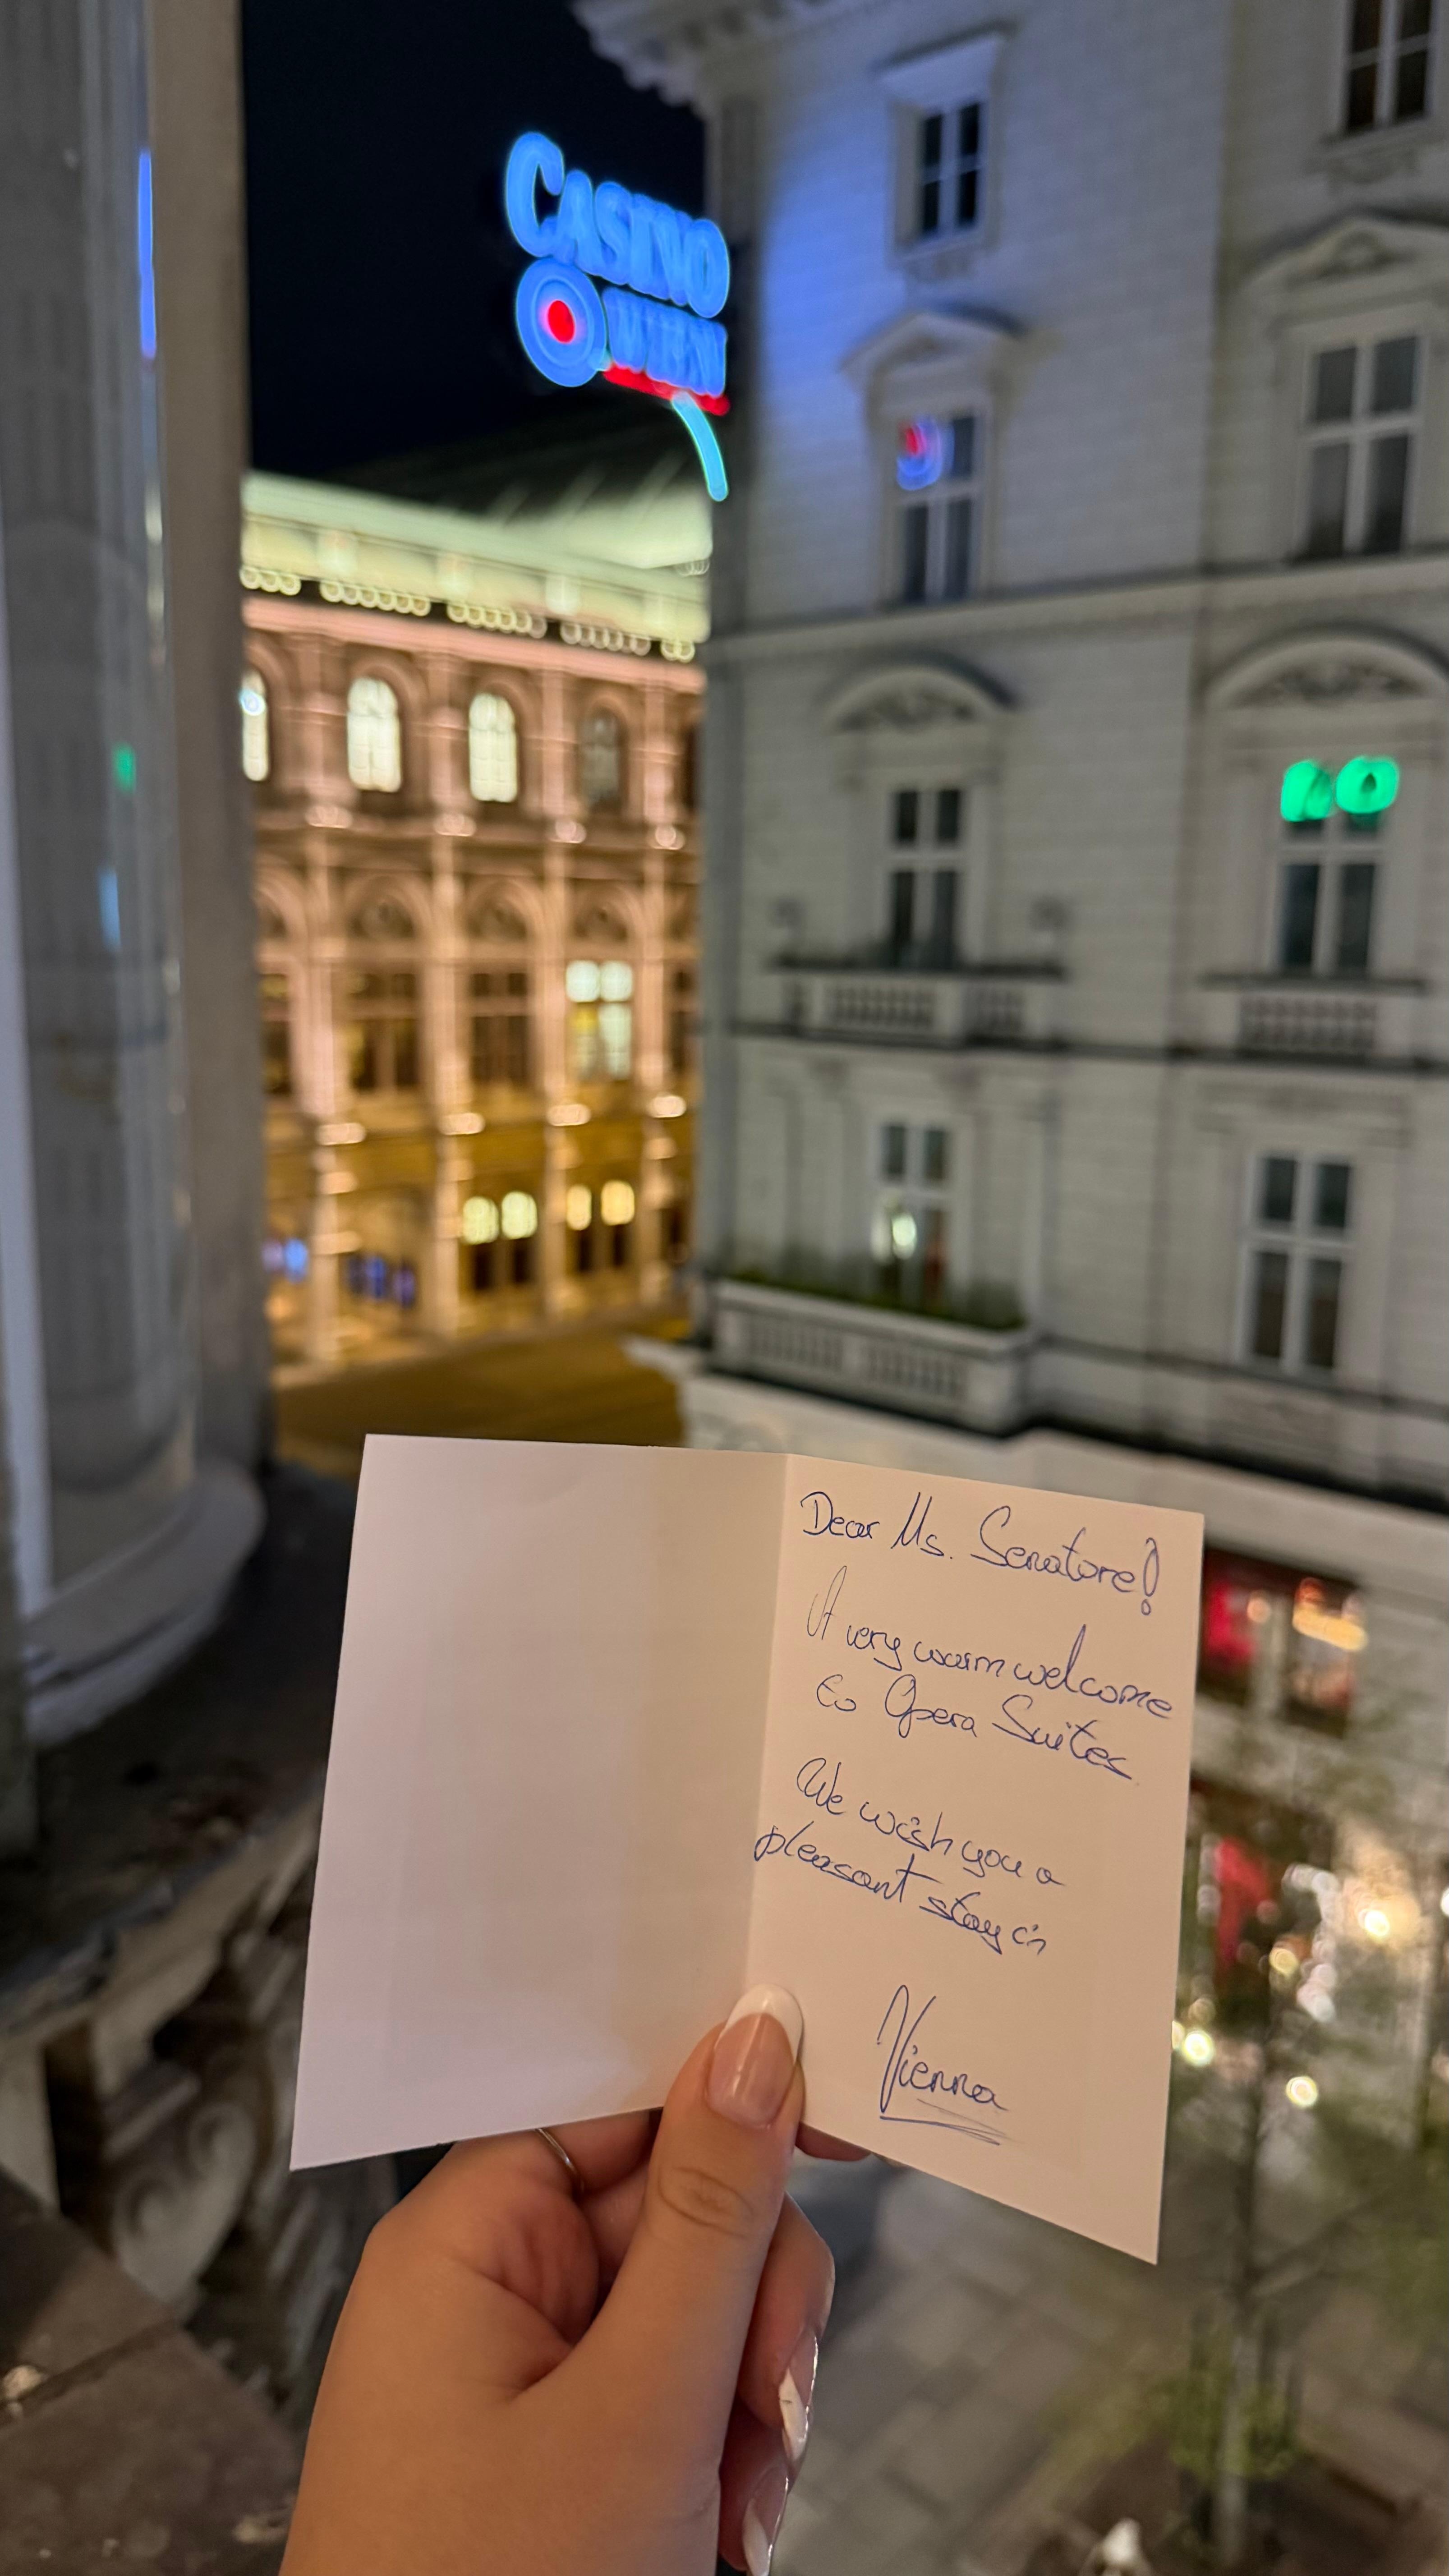 CASINO
WIEN
Dear Ms. Senatore!
A very warm welcome
to Opera Suites
We wish you a
pleasant stay in
Vienna